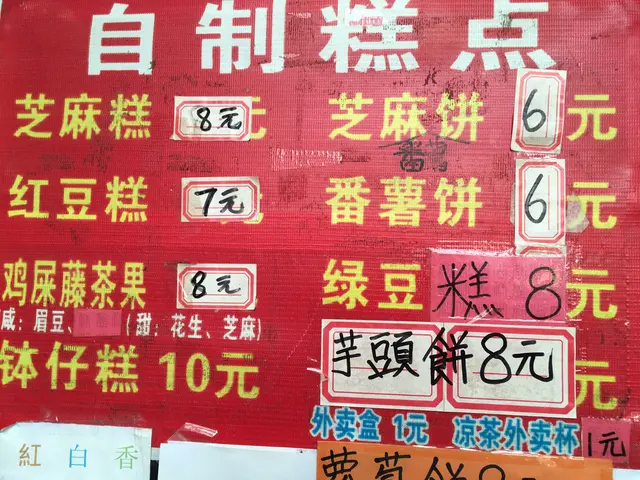 自制糕点
芝麻糕 8元
芝麻饼 6元
番薯
红豆糕 7元
番薯饼 6元
鸡屎藤茶果 8元
咸：眉豆、 （甜：花生、芝麻）
绿豆糕 8元
钵仔糕 10元
芋頭餅8元 元
外卖盒 1元 凉茶外卖杯 1元
紅白香